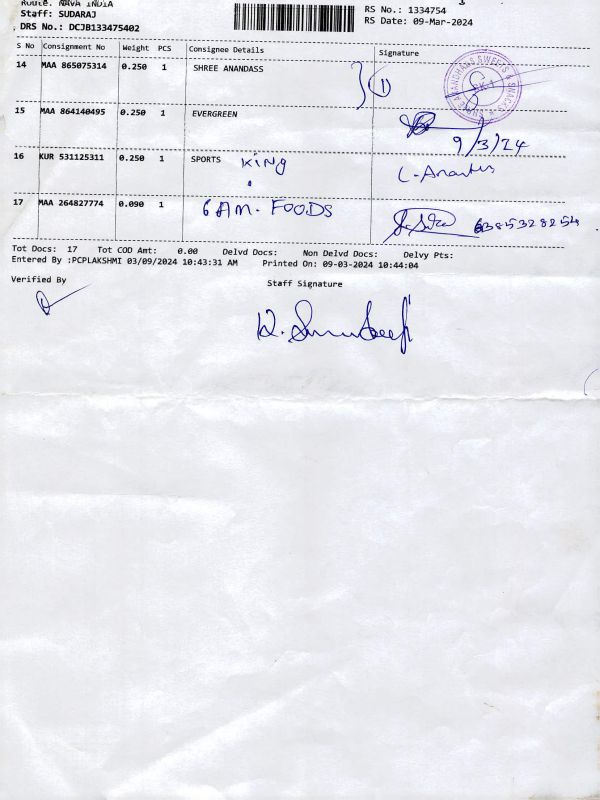 Route: NAVA INDIA
Staff: SUDARAJ
RS No.: 1334754
DRS No.: DCJB133475402
RS Date: 09-Mar-2024
S No Consignment No Weight PCS Consignee Details Signature
14 MAA 865075314 0.250 1 SHREE ANANDASS 1
15 MAA 864140495 0.250 1 EVERGREEN
9/3/24
16 KUR 531125311 0.250 1 SPORTS KING
17 MAA 264827774 0.090 1 6 AM. FOODS 6385328254
Tot Docs: 17 Tot COD Amt: 0.00 Delvd Docs: Non Delvd Docs: Delvy Pts:
Entered By :PCPLAKSHMI 03/09/2024 10:43:31 AM Printed On: 09-03-2024 10:44:04
Verified By
Staff Signature